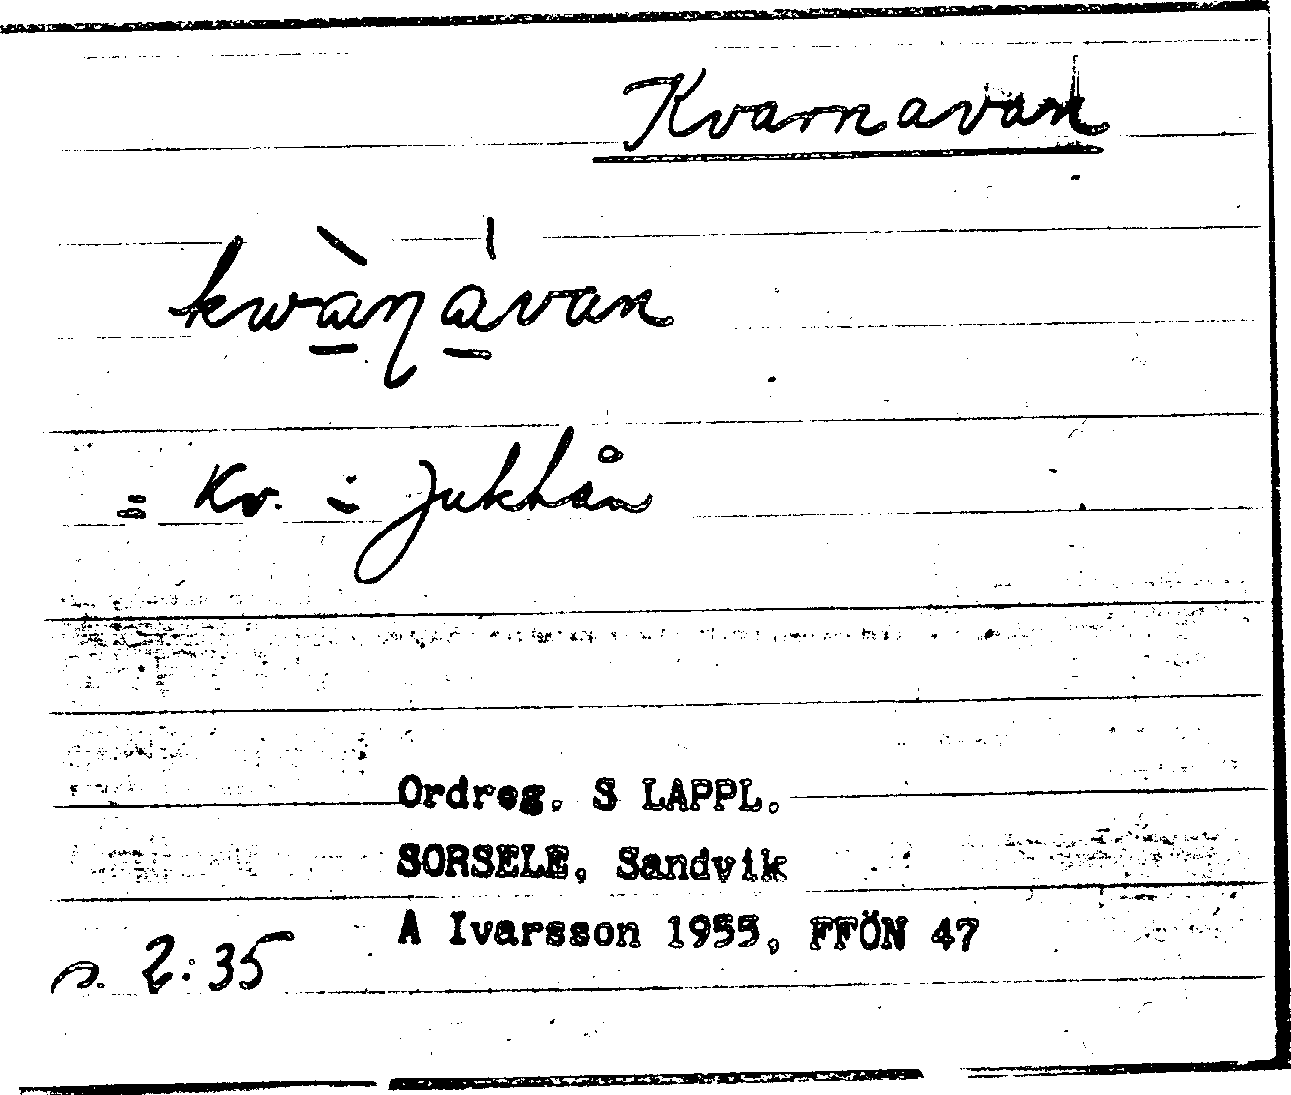 Kvarnavan
kwà̱ɳá̱van
= Kv. i Jukkån
Ordreg. S LAPPL.
SORSELE, Sandvik
A Ivarsson 1955, FFÖN 47
s. 2:35